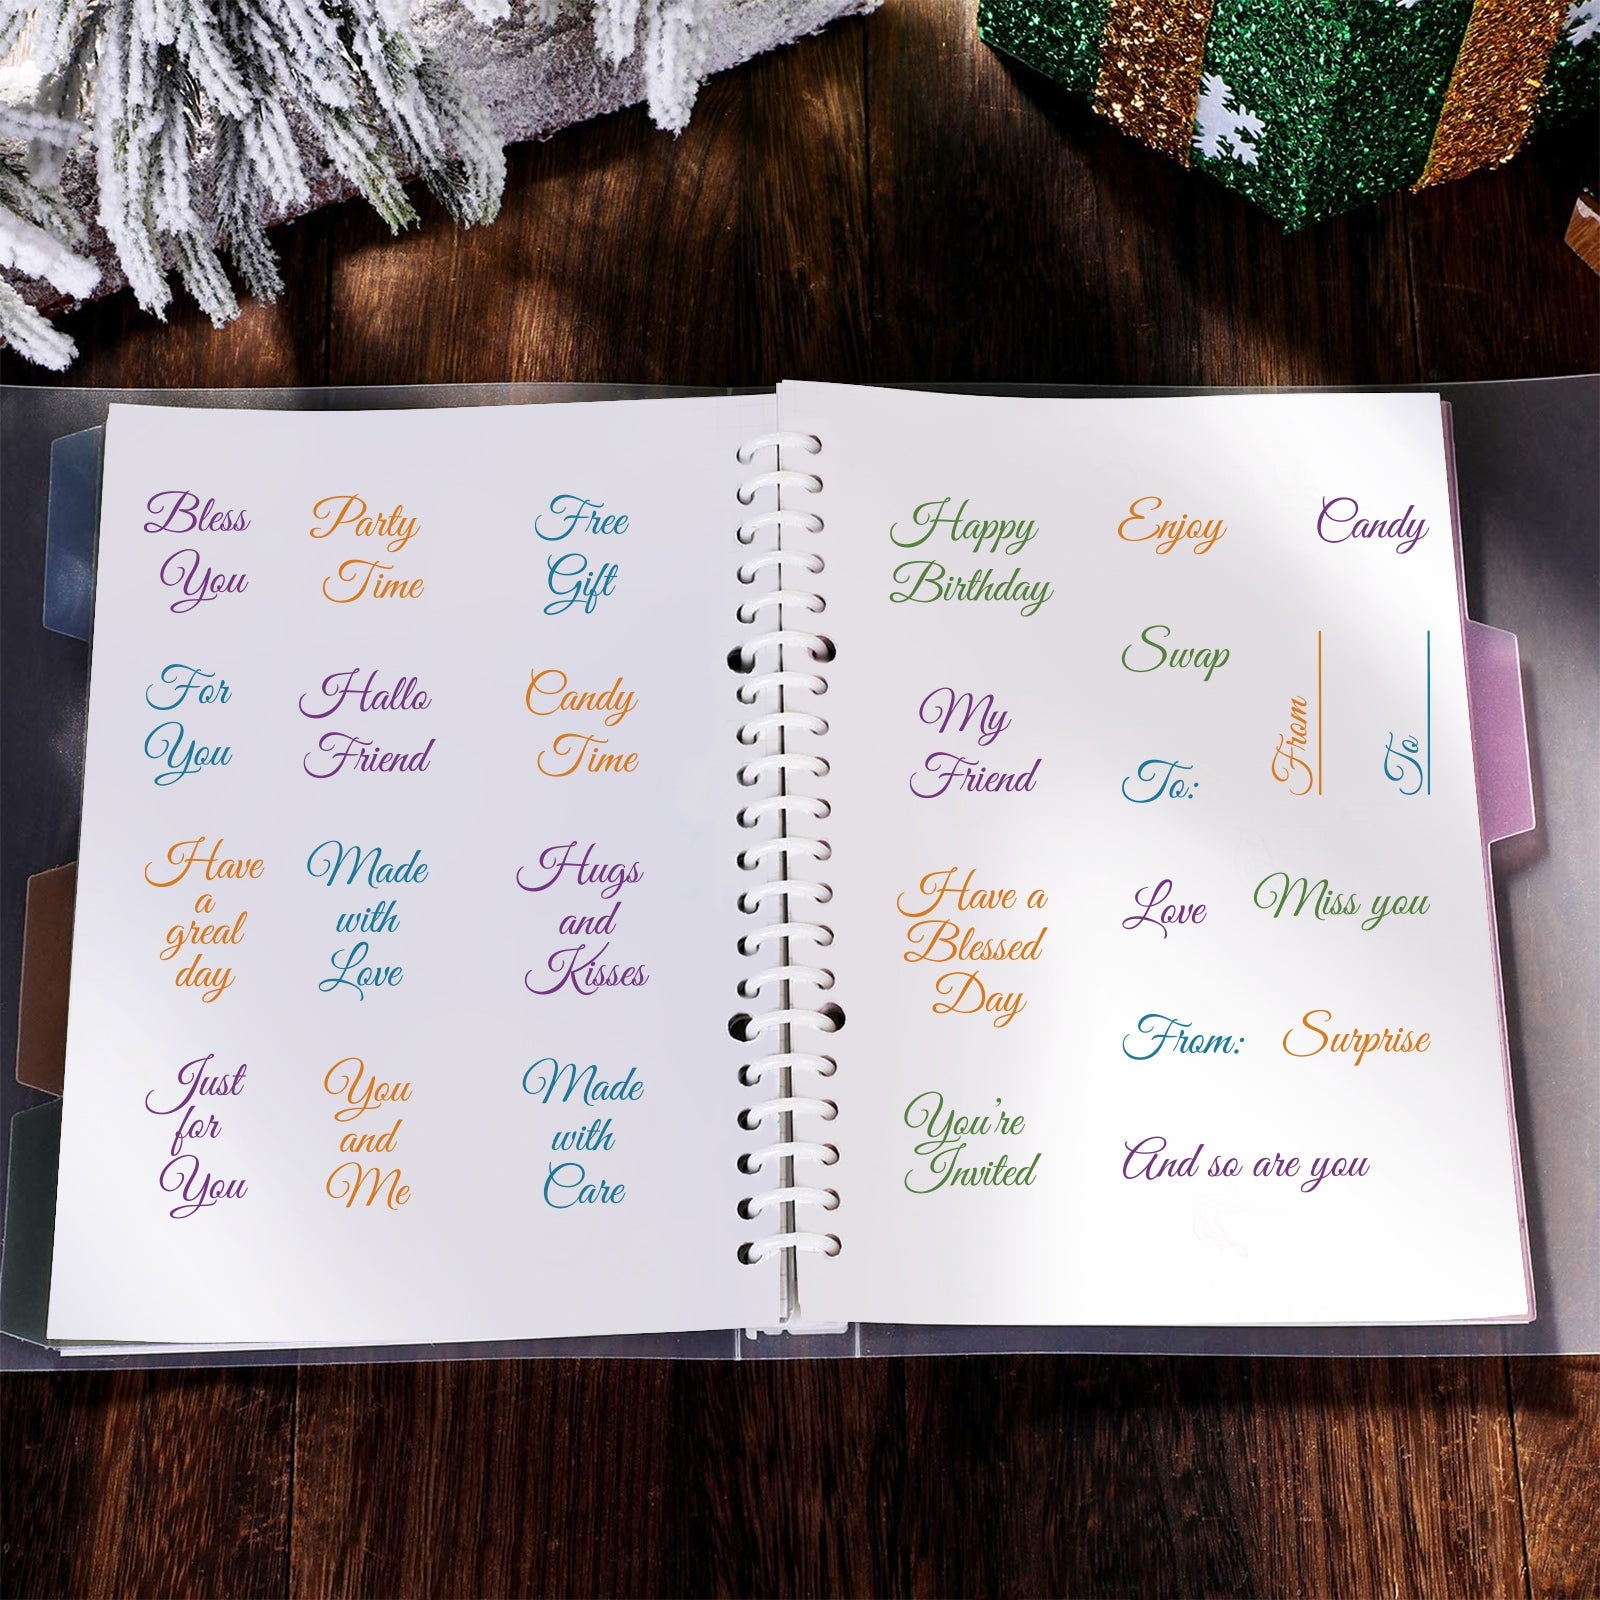 Bless
You
Party
Time
Free
Gift
For
You
Hallo
Friend
Candy
Time
Have
a
greal
day
Made
with
Love
Hugs
and
Kisses
Just
for
You
You
and
Me
Made
with
Care
Happy
Birthday
Enjoy
Candy
Swap
My
Friend
To:
From
To
Have a
Blessed
Day
Love
Miss you
From:
Surprise
You're
Invited
And so are you